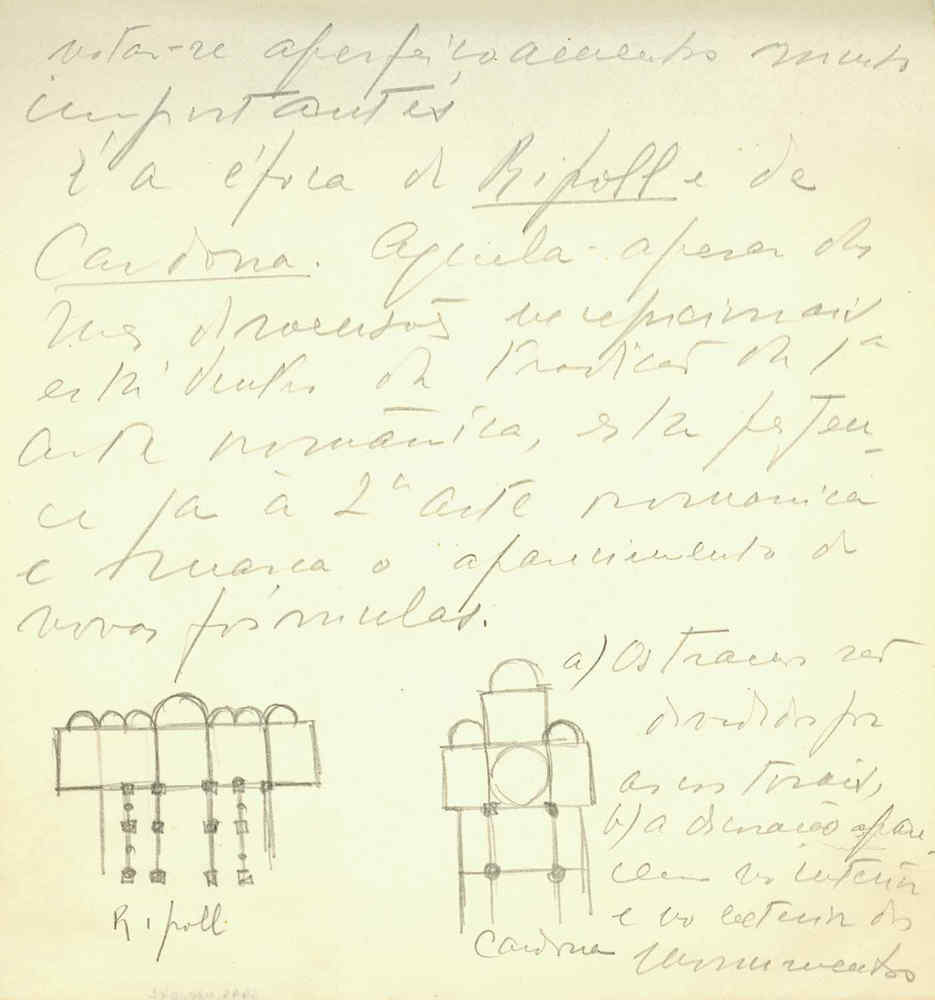 notar-se aperfeiçoamentos muito
importantes
É a época de Ripoll e de
Cardona. Aquela - apesar das
suas dimensões excepcionais
está dentro da tradição da 1ª
arte românica, esta perten-
ce já à 2ª arte romanica
e marca o aparecimento de
novas fórmulas.
a) Os tramos são
divididos por
arcos torais,
b) a decoração apare-
cem no interior
e no exterior dos
monumentos
Ripoll
Cardona